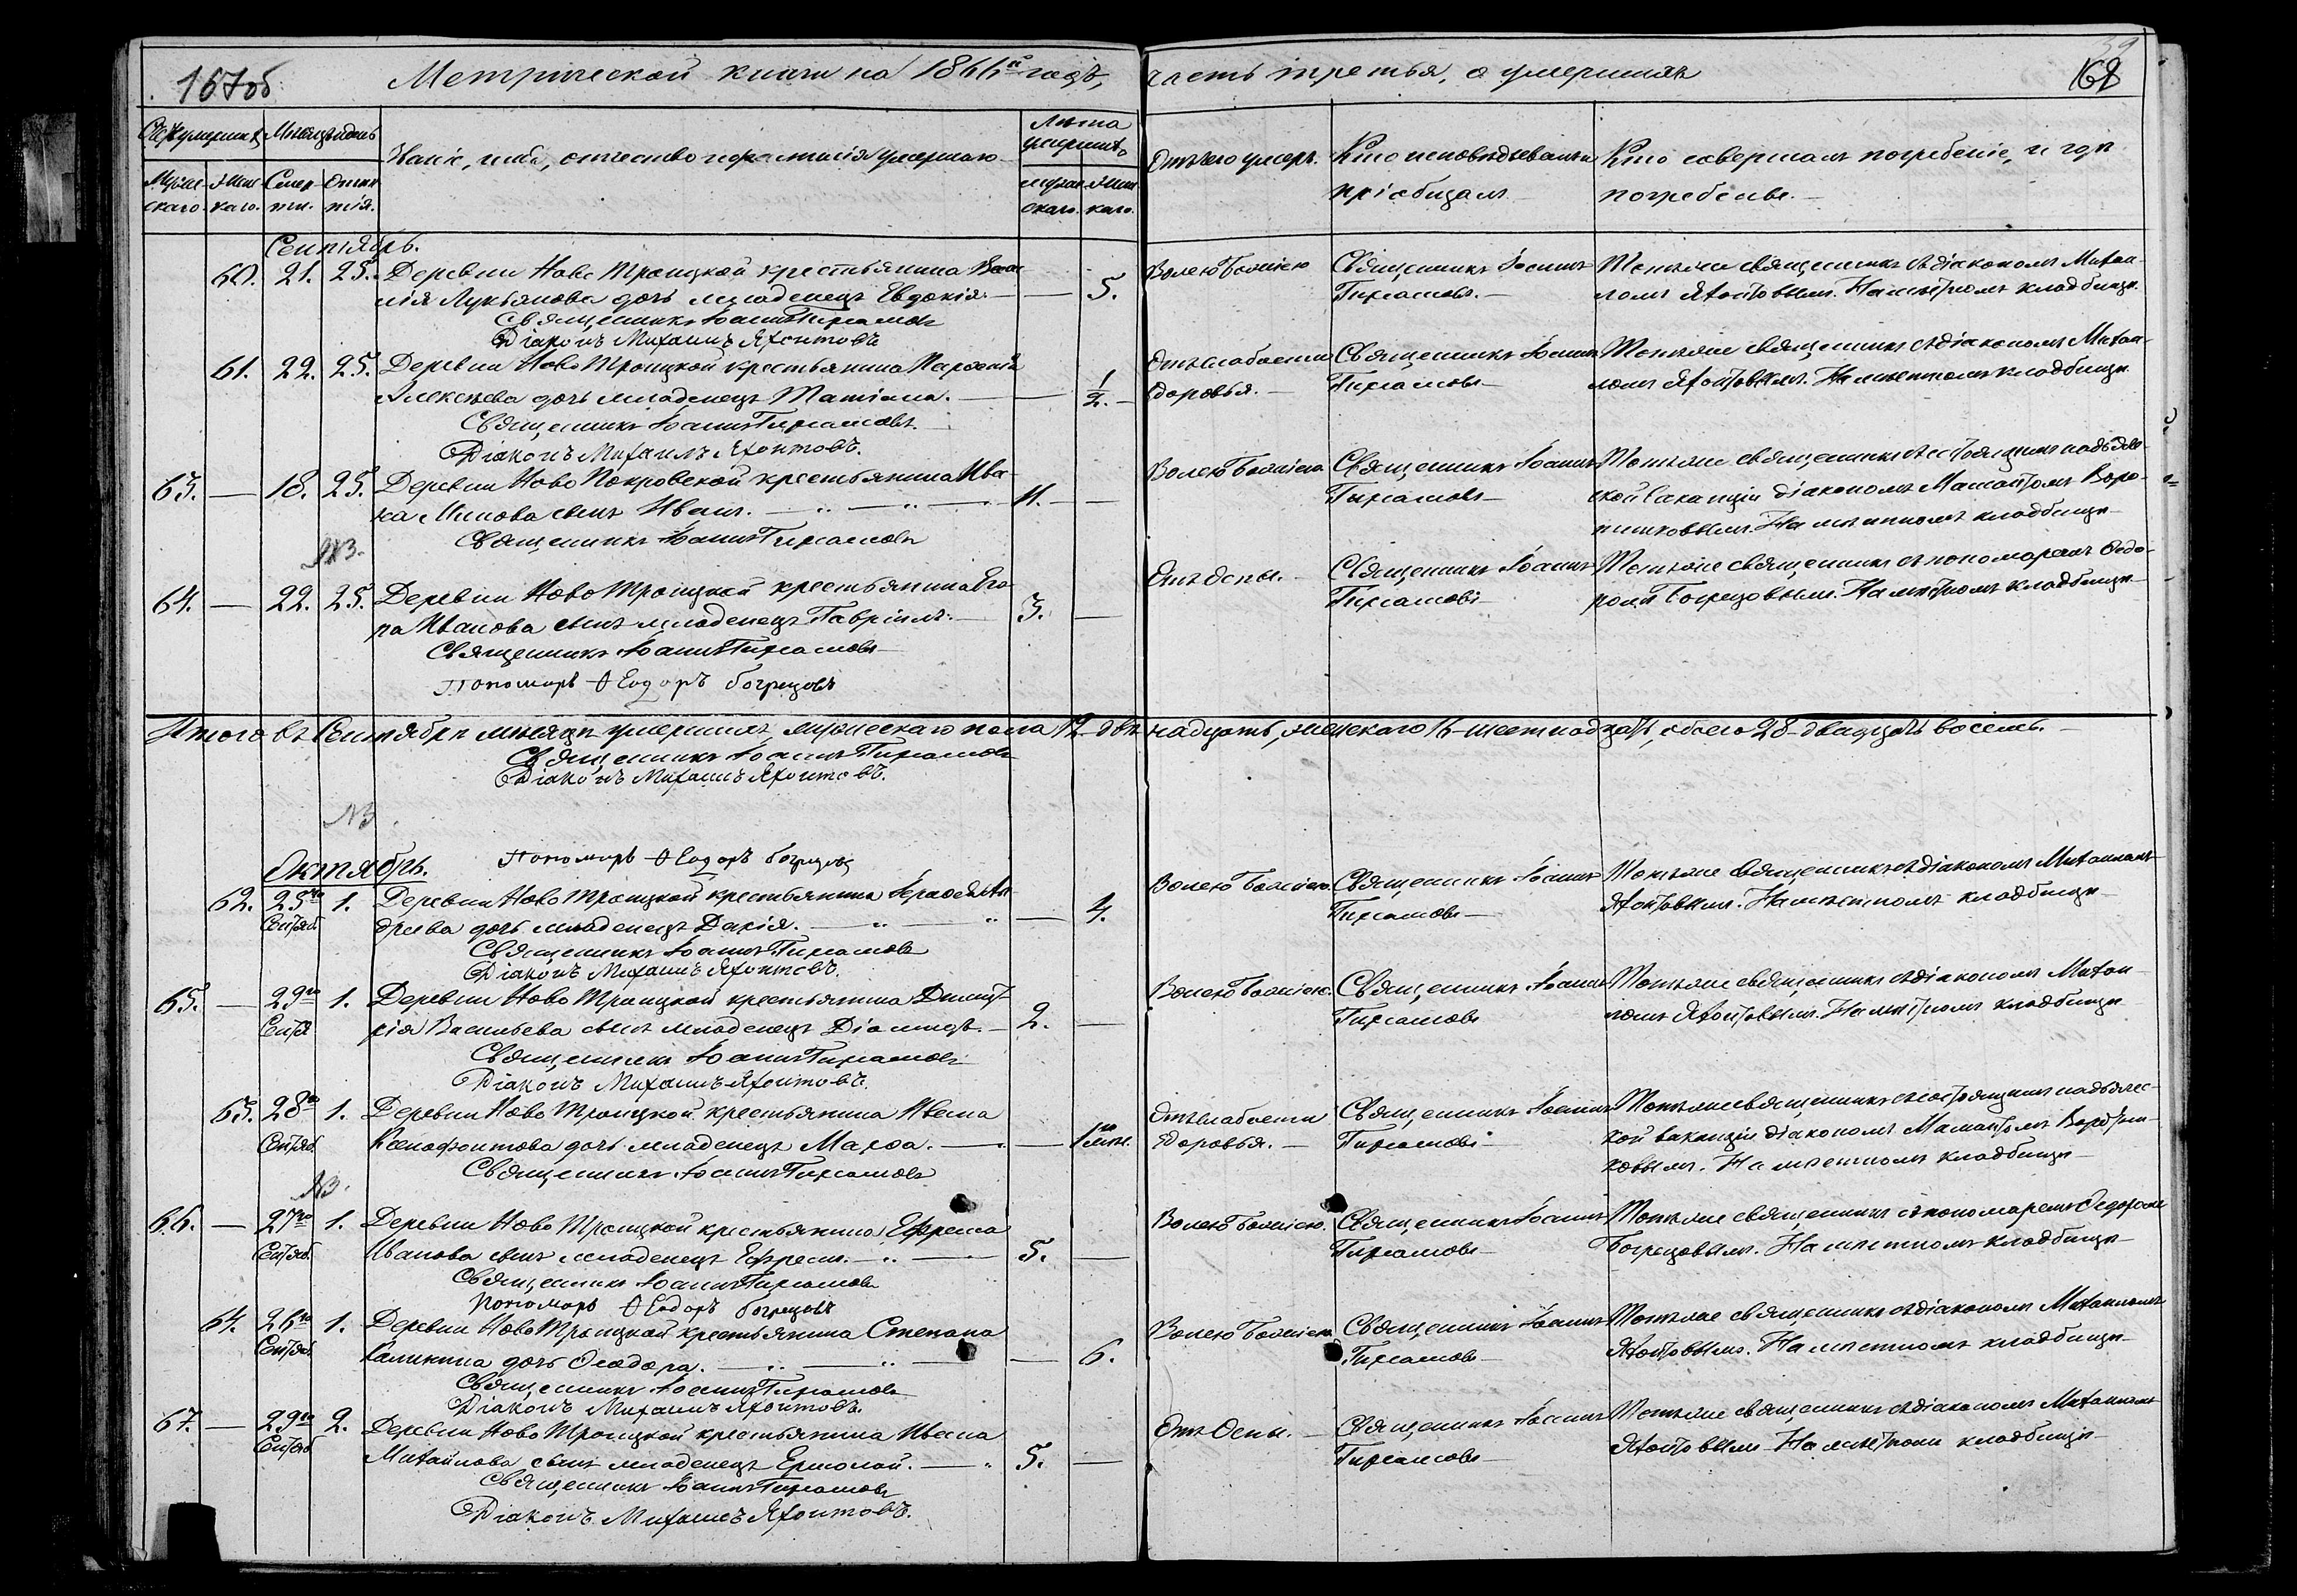 167об
Метрической книги на 1866й годъ, часть третья, о умершихъ
168
Счетъ умершихъ
Мужескаго.
Женскаго.
Мѣсяцъ и день
Смерти.
Отпѣтія.
Званіе, имя, отчество и фамилія умершаго
Лѣта умершаго
мужескаго.
женскаго.
Отъ чего умеръ.
Кто исповѣдывалъ и пріобщалъ
Кто совершалъ погребеніе, и гдѣ погребены.
Сентябрь.
60. 21. 25. Деревни Ново Троицкой крестьянина Васи-
лія Лукьянова дочь младенецъ Евдокія. — 5.
Волею Божіею
Священникъ Іоаннъ
Тихомовъ.
Тотъ же священникъ съ діакономъ Михаи-
ломъ Яхонтовымъ. На мѣстномъ кладбищѣ
Священникъ Іоаннъ
Діаконъ Михаилъ Яхонтовъ
61. 22. 25. Деревни Ново Троицкой крестьянина
Алексѣева дочь младенецъ Татіана. — 1/2.
Отъ слабости
здоровья.
Священникъ Іоаннъ
Тотъ же священникъ съ діакономъ Михаи-
ломъ Яхонтовымъ. На мѣстномъ кладбищѣ
Священникъ Іоаннъ
Діаконъ Михаилъ Яхонтовъ.
63. — 18. 25. Деревни Ново Покровской крестьянина Ива-
на Минова сынъ Иванъ. 11. —
Волею Божіею
Священникъ Іоаннъ
Тотъ же священникъ съ состоящимъ на дьяче-
ской вакансіи діакономъ Мамонтомъ
На мѣстномъ кладбищѣ
Священникъ Іоаннъ
NB.
64. — 22. 25. Деревни Ново Троицкой крестьянина Его-
ра Иванова сынъ младенецъ Гавріилъ. 3. —
Отъ оспы.
Священникъ Іоаннъ
Тотъ же священникъ съ пономаремъ Ѳедо-
ромъ Богрецовымъ. На мѣстномъ кладбищѣ
Священникъ Іоаннъ
Пономарь Ѳеодоръ Богрецовъ
Итого въ Сентябрѣ мѣсяцѣ умершихъ, мужескаго пола 12-двѣнадцать, женскаго 16-шестнадцать, обоего 28-двадцать восемь.
Священникъ Іоаннъ
Діаконъ Михаилъ Яхонтовъ.
NB.
Пономарь Ѳеодоръ Богрецовъ
Октябрь.
62. 25го Сентяб. 1. Деревни Ново Троицкой крестьянина Ан-
дреева дочь младенецъ Дарія. — 4.
Волею Божіею.
Священникъ Іоаннъ
Тотъ же священникъ съ діакономъ Михаиломъ
Яхонтовымъ. На мѣстномъ кладбищѣ
Священникъ Іоаннъ
Діаконъ Михаилъ Яхонтовъ.
65. — 29го Сентяб 1. Деревни Ново Троицкой крестьянина Димит-
рія Васильева сынъ младенецъ 2. —
Волею Божіею.
Священникъ Іоаннъ
Тотъ же священникъ съ діакономъ Михаи-
ломъ Яхонтовымъ. На мѣстномъ кладбищѣ
Священникъ Іоаннъ
Діаконъ Михаилъ Яхонтовъ.
63. 28го Сентяб. 1. Деревни Ново Троицкой крестьянина Ивана
Ксенофонтова дочь младенецъ Марѳа. —
Отъ слабости
здоровья.
Священникъ Іоаннъ
Тотъ же священникъ съ состоящимъ на дьячес-
кой вакансіи діакономъ Мамонтомъ
На мѣстномъ кладбищѣ
Священникъ Іоаннъ
NB.
66. — 27го Сентяб. 1. Деревни Ново Троицкой крестьянина Ефрема
Иванова сынъ младенецъ Ефремъ. 5. —
Волею Божіею.
Священникъ Іоаннъ
Тотъ же священникъ съ пономаремъ Ѳедоромъ
Богрецовымъ. На мѣстномъ кладбищѣ
Священникъ Іоаннъ
Пономарь Ѳеодоръ Богрецовъ
64. 26го Сентяб. 1. Деревни Ново Троицкой крестьянина Степана
Каликина дочь Ѳеодора. — 6.
Волею Божіею
Священникъ Іоаннъ
Тотъ же священникъ съ діакономъ Михаиломъ
Яхонтовымъ. На мѣстномъ кладбищѣ
Священникъ Іоаннъ
Діаконъ Михаилъ Яхонтовъ.
67. — 29го Сентяб 2. Деревни Ново Троицкой крестьянина Ивана
Михайлова сынъ младенецъ Ермолай. 5. —
Отъ Оспы.
Священникъ Іоаннъ
Тотъ же священникъ съ діакономъ Михаиломъ
Яхонтовымъ На мѣстномъ кладбищѣ
Священникъ Іоаннъ
Діаконъ Михаилъ Яхонтовъ.